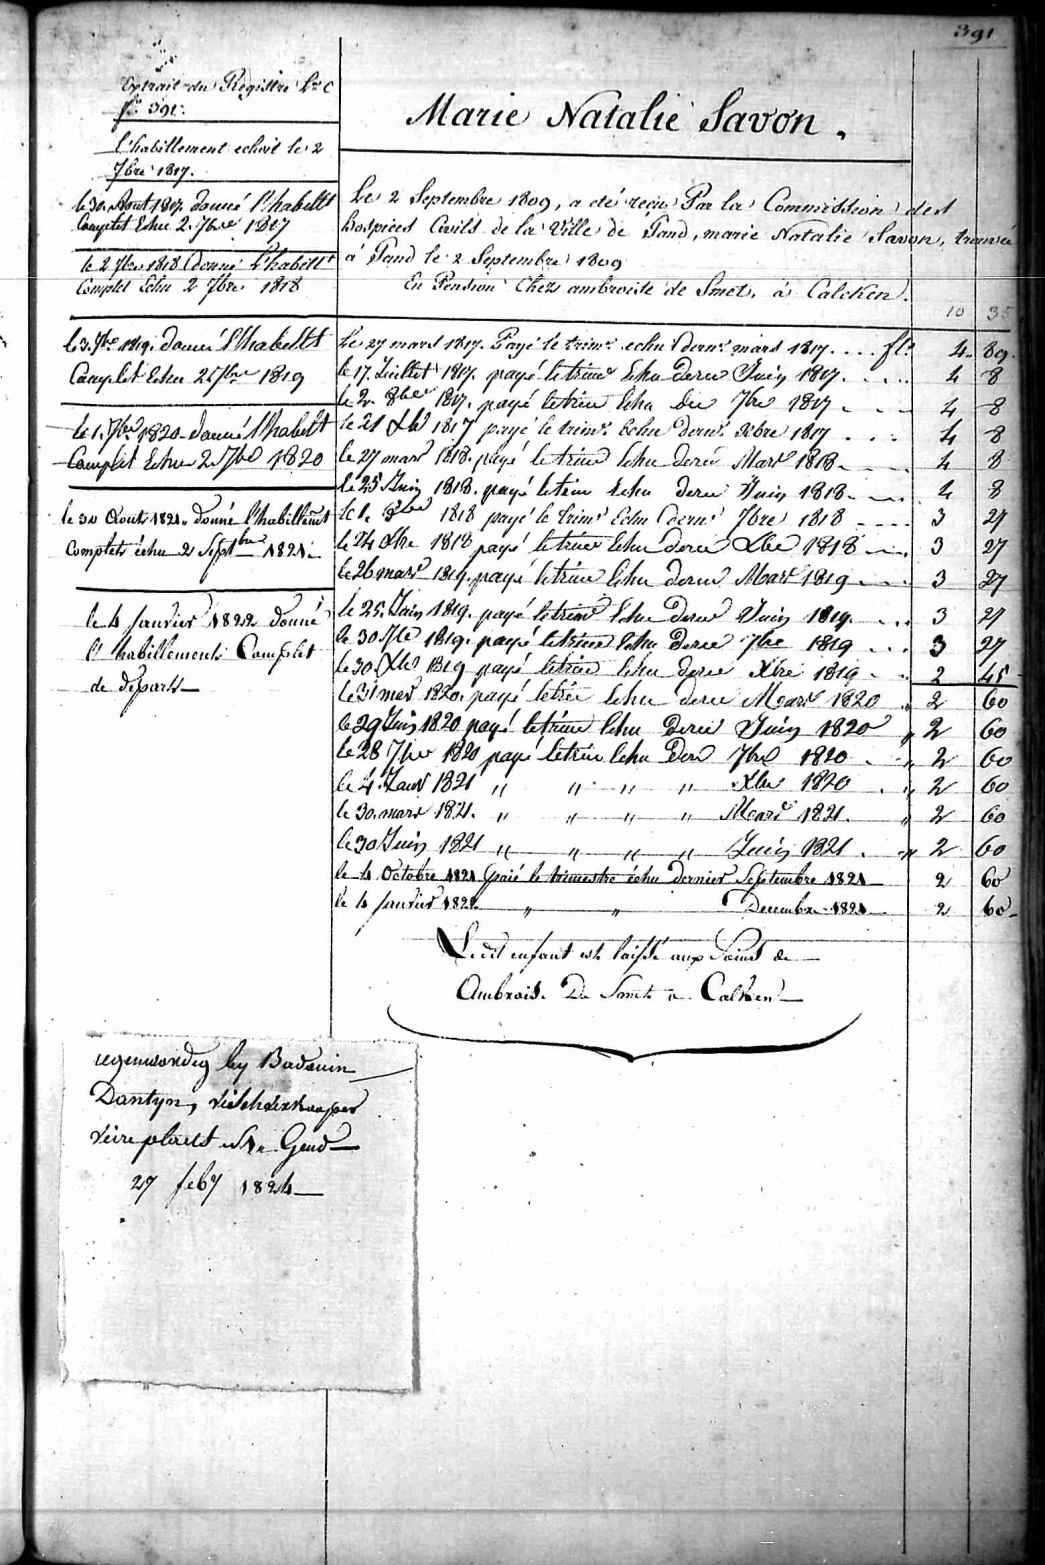 391
Extrait du Registre Lre C
fo. 391.
l'habillement echoit le 2
7bre 1817.
le 30. Aout 1817 donné l'habellt
Complet Echu 2. 7bre 1817
le 2 7bre 1818 donné l'habillt
Complet Echu 2 7bre 1818
le 3. 7bre 1819. donné l'habellt
Complet Echu 2 7bre 1819
le 1. 7bre 1820 donné l'habellt
Complet Echu 2 7bre 1820
le 30 Aout 1821. donné l'habillemt
Complet échu 2 Septbre 1821.
le 4 Janvier 1822 donné
l'habillement Complet
de départ
Marie Natalie Savon.
Le 2 Septembre 1809, a été reçue Par la Commission des
hospices Civils de la Ville de Gand, marie Natalie Savon, trouvée
à Gand le 2 Septembre 1809
En Pension Chez ambroise de Smet, à Calcken.
10 35
Le 27 mars 1817. Payé le trimre echu dernr mars 1817. . . . fls 4. 89.
le 17. Juillet 1817. payé le trimre Echu dernr Juin 1817. . . . . 4 8
le 2. 8bre 1817. payé le trimre Echu der 7bre 1817 . . . 4 8
le 21 Xbre 1817 payé le trimre Echu dernr Xbre 1817 . . . 4 8
le 27 mars 1818. payé le trimre Echu dernr Mars 1818. . . . 4 8
le 25 Juin 1818. payé le trim Echu dernr Juin 1818. . . . 4 8
le 1. 8bre 1818 payé le trimre Echu dernr 7bre 1818 . . . . 3 27
le 24 Xbre 1818 payé le trimre Echu dernr Xbre 1818 . . . 3 27
le 26 mars 1819. payé le trimre Echu dernr Mars 1819 . . . 3 27
le 25. Juin 1819. payé le trimre Echu dernr Juin 1819. . . . 3 27
le 30 7bre 1819. payé le trimre Echu dernr 7bre 1819 . . . 3 27
le 30. Xbre 1819 payé le trimre Echu dernr Xbre 1819 . . 2 45
le 31 mars 1820. payé le trim Echu dernr Mars 1820 „ 2 60
le 29 Juin 1820 payé le trimre Echu dernr Juin 1820 „ 2 60
le 28 7bre 1820 payé le trim Echu dernr 7bre 1820 . „ 2 60
le 4. Janv 1821 „ „ „ „ Xbre 1820 . „ 2 60
le 30. mars 1821. „ „ „ „ Mars 1821. „ 2 60
le 30 Juin 1821 „ „ „ „ Juin 1821 . „ 2 60
le 4 Octobre 1821 payé le trimestre échu dernier Septembre 1821 2 60
le 4 Janvier 1822 „ „ Decembre 1821 2 60
Ledit enfant est laissé aux Soins de
Ambroise De Smet a Calken
tegenwoordig by Baduin
Dantyn, vischverkooper
veireplaets Nr Gend
27 feby 1824